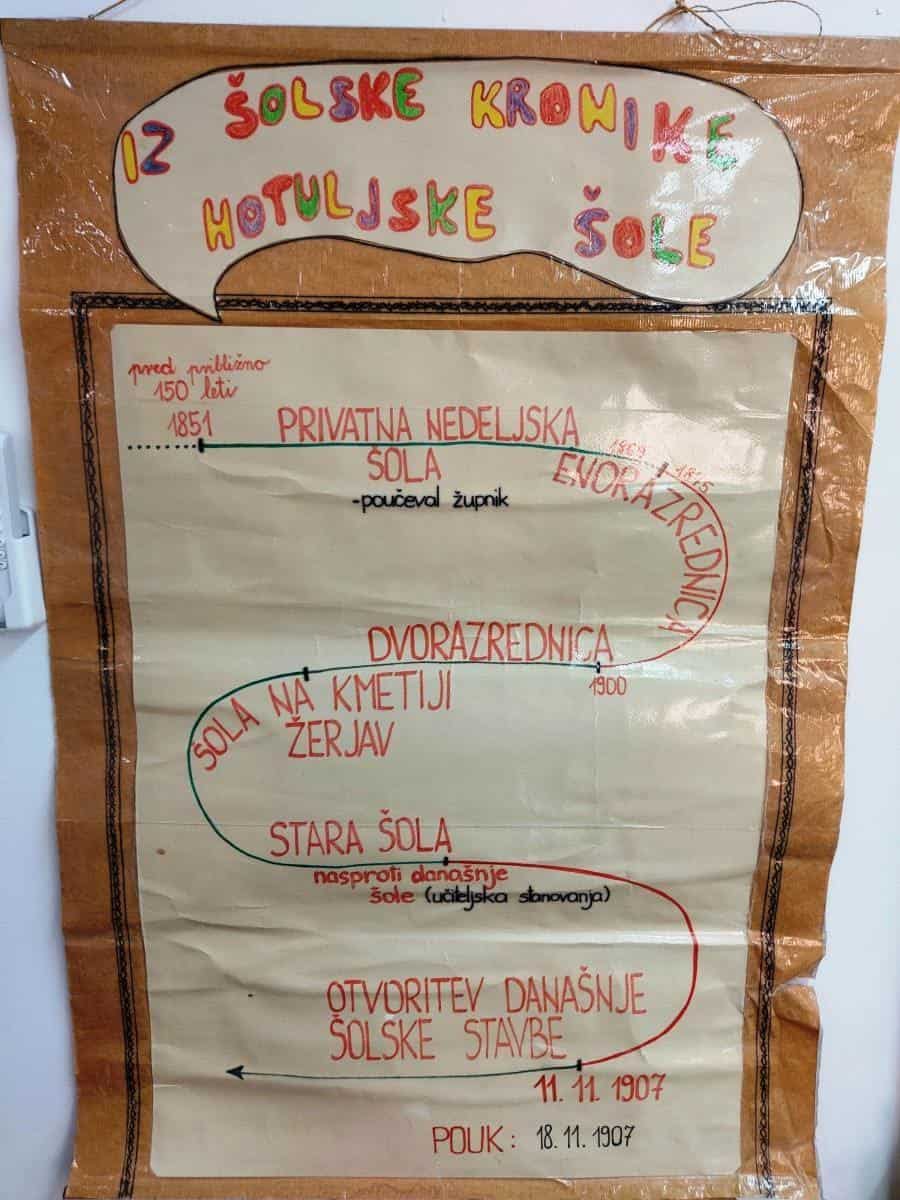 IZ ŠOLSKE KRONIKE
HOTULJSKE ŠOLE
pred približno
150 leti
1851
PRIVATNA NEDELJSKA
ŠOLA
-poučeval župnik
1869
ENORAZREDNICA
DVORAZREDNICA
1900
ŠOLA NA KMETIJI
ŽERJAV
STARA ŠOLA
nasproti današnje
šole (učiteljska stanovanja)
OTVORITEV DANAŠNJE
ŠOLSKE STAVBE
11. 11. 1907
POUK: 18. 11. 1907